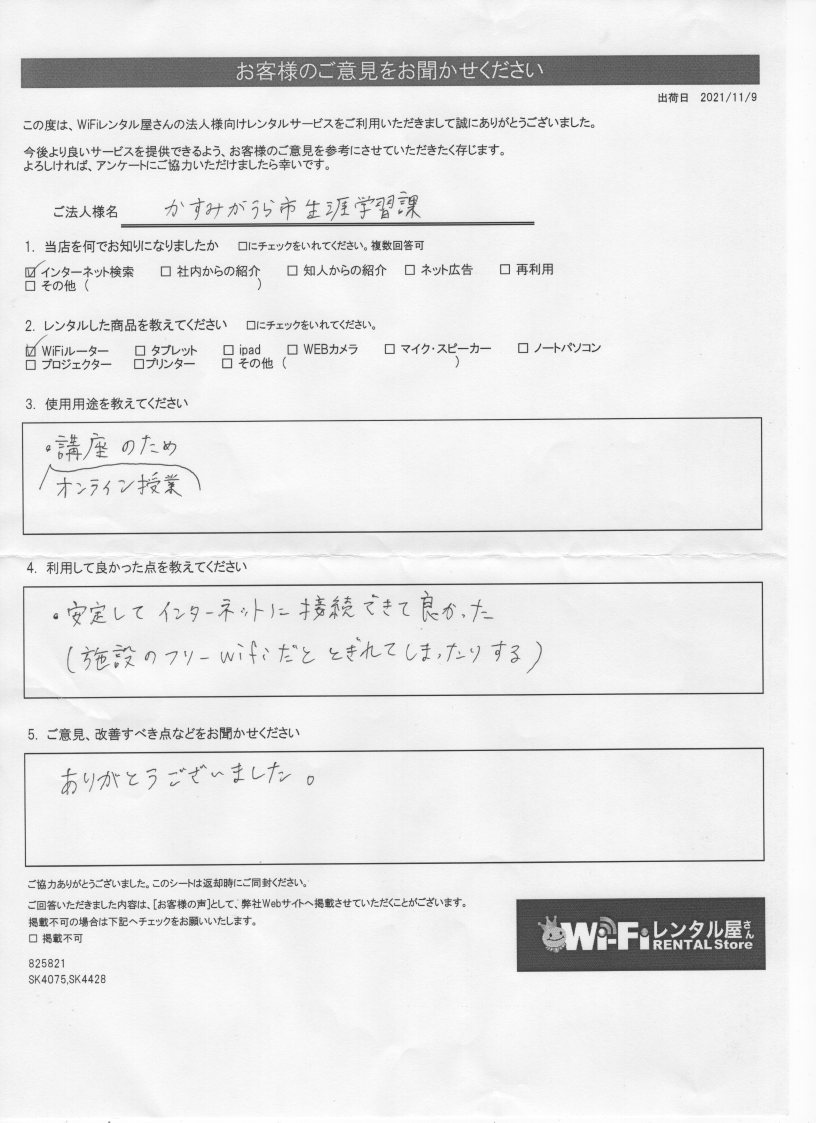 お客様のご意見をお聞かせください
出荷日 2021/11/9
この度は、WiFiレンタル屋さんの法人様向けレンタルサービスをご利用いただきまして誠にありがとうございました。
今後より良いサービスを提供できるよう、お客様のご意見を参考にさせていただきたく存じます。
よろしければ、アンケートにご協力いただけましたら幸いです。
ご法人様名 かすみがうら市生涯学習課
1. 当店を何でお知りになりましたか □にチェックをいれてください。複数回答可
☑ インターネット検索 □ 社内からの紹介 □ 知人からの紹介 □ ネット広告 □ 再利用
□ その他 ( )
2. レンタルした商品を教えてください □にチェックをいれてください。
☑ WiFiルーター □ タブレット □ ipad □ WEBカメラ □ マイク・スピーカー □ ノートパソコン
□ プロジェクター □プリンター □ その他 ( )
3. 使用用途を教えてください
・講座のため
(オンライン授業)
4. 利用して良かった点を教えてください
・安定してインターネットに接続できて良かった
(施設のフリーwifiだととぎれてしまったりする)
5. ご意見、改善すべき点などをお聞かせください
ありがとうございました。
ご協力ありがとうございました。このシートは返却時にご同封ください。
ご回答いただきました内容は、[お客様の声]として、弊社Webサイトへ掲載させていただくことがございます。
掲載不可の場合は下記へチェックをお願いいたします。
□ 掲載不可
Wi-Fiレンタル屋さん
RENTAL Store
825821
SK4075,SK4428